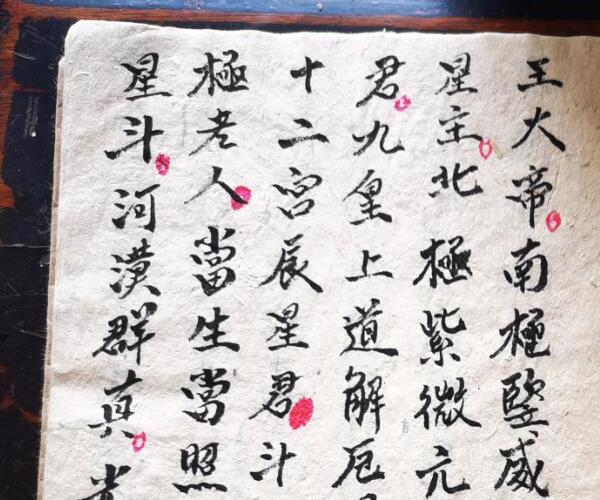 王大帝南極
星主北極紫微元
君九皇上道解厄
十二宮辰星君斗
極老人當生當照
星斗河漢群真